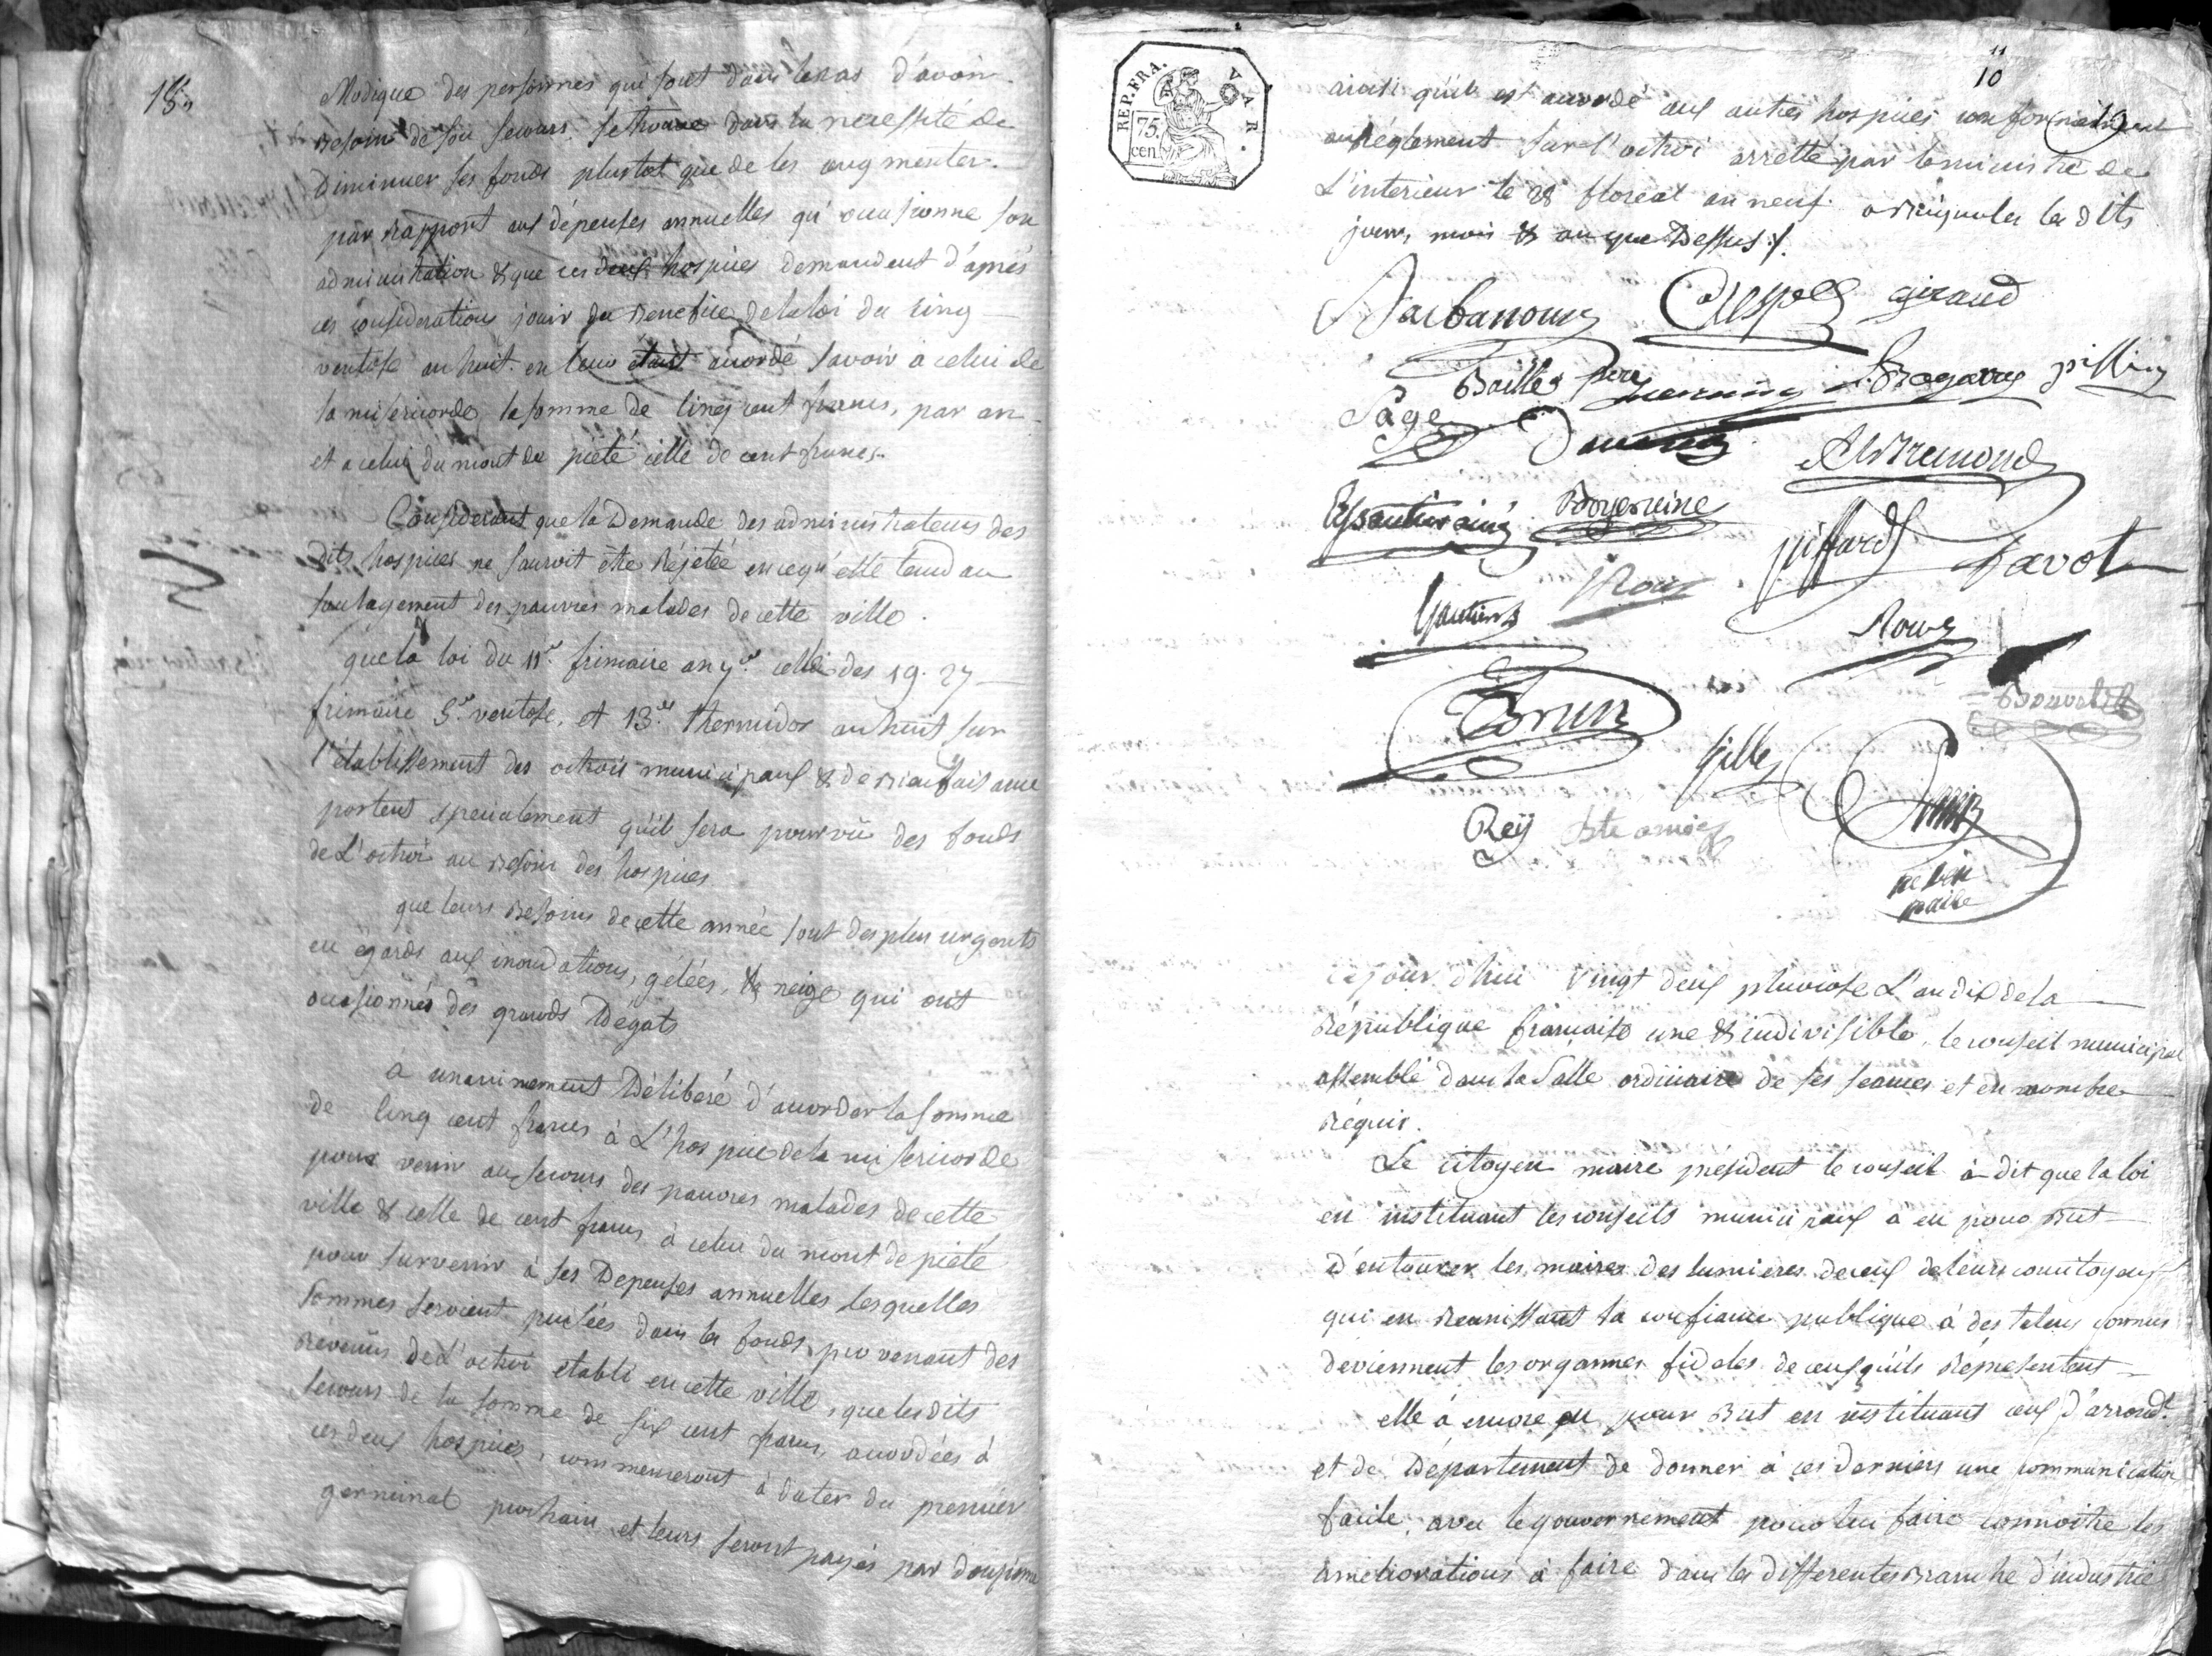 18.
Modique des personnes qui sont dans le cas d'avoir
Besoin de son secours. se trouve dans la necessité de
Diminuer ses fonds plustot que de les augmenter.
par Rapport aux dépenses annuelles qu'occasionne son
administration & que ces deux hospices demandent d'après
ces considerations jouir du Benefice de la loi du cinq
ventose an huit. en leur etant accordé savoir à celui de
la misericorde, la somme de cinq cent francs, par an
et a celui du mont de pieté celle de cent francs.
Considerant que la Demande des administrateurs des
dits hospices ne sauroit etre Réjetée en ce qu'elle tend au
soulagement des pauvres malades de cette ville.
que la loi du 11e. frimaire an 7e. celle des 19. 27
frimaire 5e. ventose, et 13e. thermidor an huit sur
l'établissement des octrois municipaux & de Bienfaisance
portent specialement qu'il sera pourvû des fonds
de L'octroi au Besoin des hospices
que leurs Besoins de cette année sont des plus urgents
eu égards aux inondations, gélées, & neige qui ont
occasionnés des grands Dégats
a unanimement Délibéré d'accorder la somme
de cinq cent francs à L'hospice de la misericorde
pour venir au secours des pauvres malades de cette
ville & celle de cent francs à celui du mont de pieté
pour survenir à ses Depenses annuelles lesquelles
sommes seroient puisées dans les fonds provenant des
Révenus de L'octroi etabli en cette ville, que les dits
secours de la somme de six cent francs, accordées à
ces deux hospices, commenceront à dater du premier
germinal prochain et leurs seront payés par douzieme
11
10
ainsi qu'il est accordé aux autres hospices conformement
au Réglement sur l'octroi arretté par le ministre de
L'interieur le 28 floreal an neuf. a Brignoles les dits
jours, mois & an que Dessus ./.
REP. FRA.
VAR.
75.
cen.
Barbaroux giraud
Sage Bailles
Bremond
Gautier ainé Boyer ainé
piffard favot
Gautier Roux
Roux
Brun
Gille
Rey
maire
Ce jour d'hui vingt deux pluviose L'an dix de la
République francaise une & indivisible. le conseil municipal
assemblé dans la salle ordinaire de ses seances et en nombre
Réquis.
Le citoyen maire président le conseil à dit que la loi
en instituant les conseils municipaux a eu pour But
D'entourer les maires des lumieres de ceux de leurs concitoyens
qui en Réunissant la confiance publique à des talens connus
deviennent les organnes fidales de ceux qu'ils Répresentent
elle à encore eu pour But en instituant ceux d'arrondt.
et de Département de donner à ces derniers une communication
facile, avec le gouvernement pour lui faire connoitre les
ameliorations à faire dans les differentes Branche d'industrie